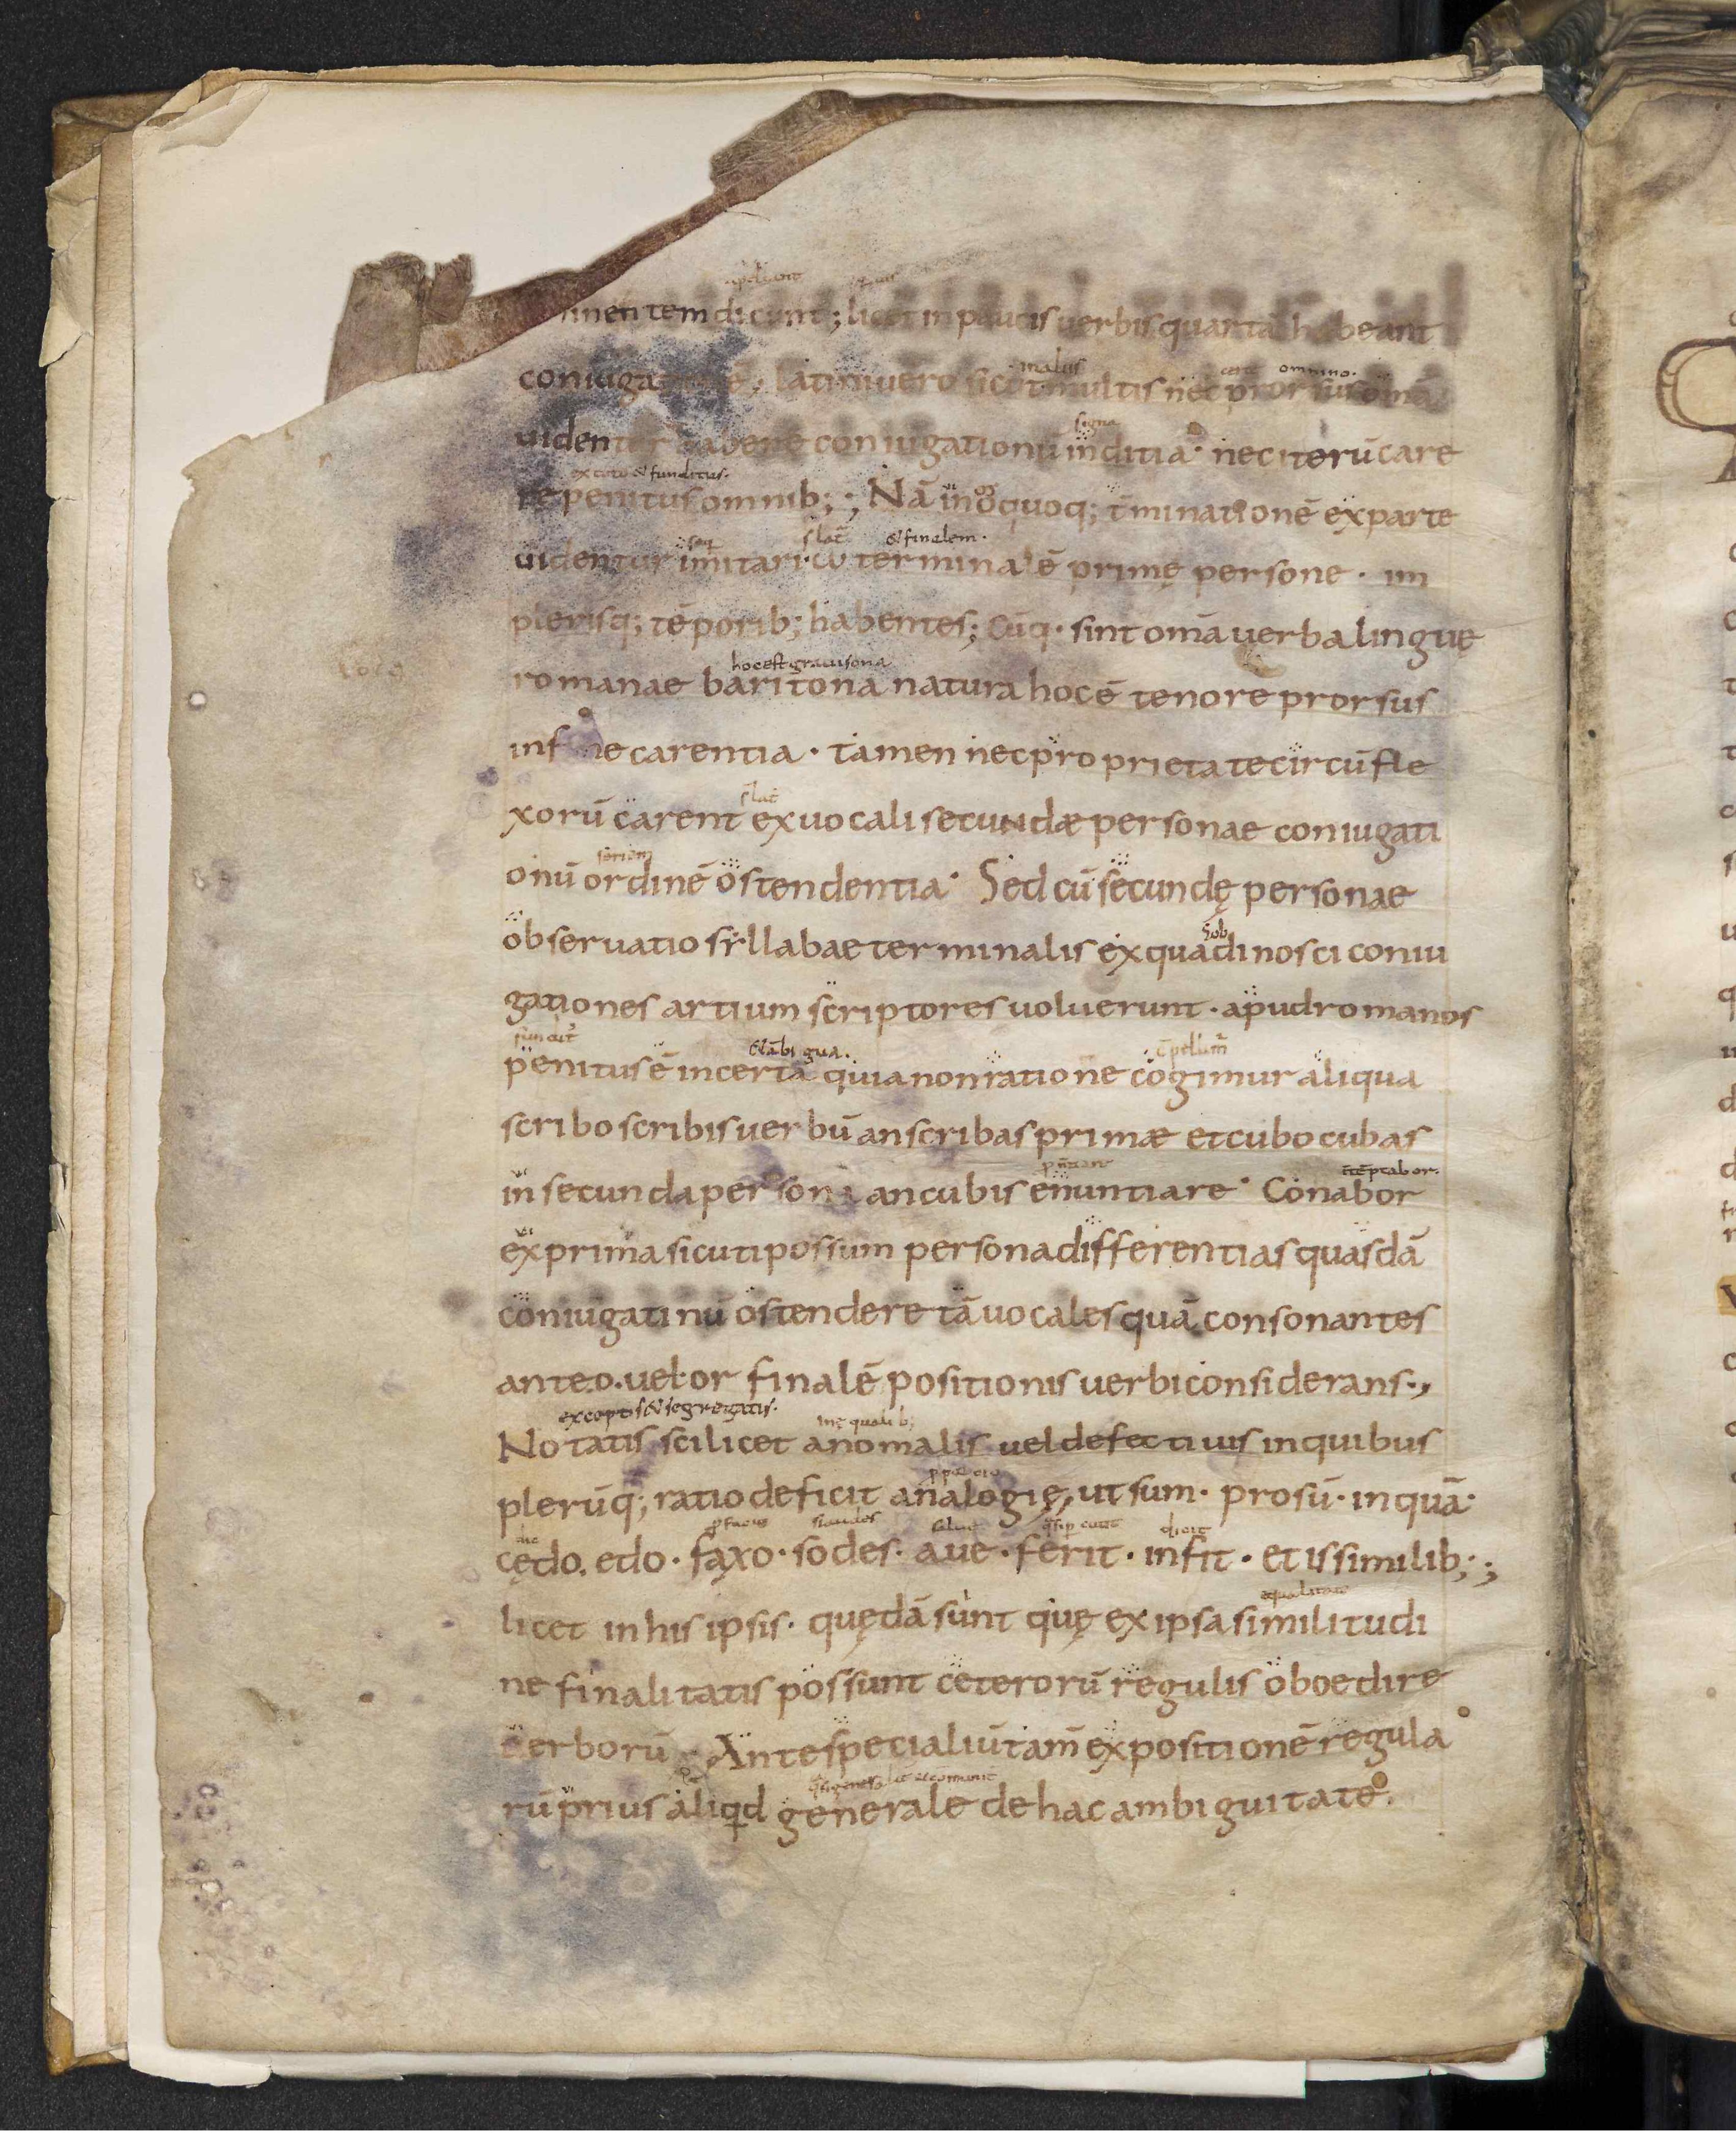 inentem dicunt; licet in paucis uerbis quartā habeant
coniuga latini uero sicut multis nec prorsus omā
malus omnino.
uidentur habere coniugationū inditia · nec iterū care
signa
ex toto & funditus.
re penitus omnib; ; Nā in ω quoq; t̄minationē ex parte
& finalem.
uidentur imitari · ω terminalē primę persone · in
plerisq; tēporib; habentes; Cūq · sint omā uerba linguę
hoc est grauisona
romanae baritona natura hoc ē tenore prorsus
in fine carentia · tamen nec proprietate circūfle
xorū carent ex uocali secundæ personae coniugati
seriem
onū ordinē ostendentia · Sed cū secundę personae
obseruatio sẏllabae terminalis ex qua dinosci coniu
gationes artium scriptores uoluerunt · apud romanos
& ābigua.
penitus ē incerta quia non ratione cogimur aliqua
scribo scribis uerbū an scribas primæ et cubo cubas
in secunda persona an cubis enuntiare · Conabor
ex prima sicuti possum persona differentias quasdā
coniugatinū ostendere tā uocales quā consonantes
ante .o. uel · or finalē positionis uerbi considerans ·,
exceptis & segregatis.
inęqualib;
Notatis scilicet anomalis uel defectiuis in quibus
plerūq; ratio deficit analogię, ut sum · prosū · inquā ·
dic
dicit
cędo. edo · faxo · sodes · aue · ferit · infit · et is similib; ;
equalitate
licet in his ipsis · quędā sunt quę ex ipsa similitudi
ne finalitatis possunt ceterorū regulis oboedire
uerborū Ante specialiū tam̄ expositionē regula
rū prius aliqd generale de hac ambiguitate.